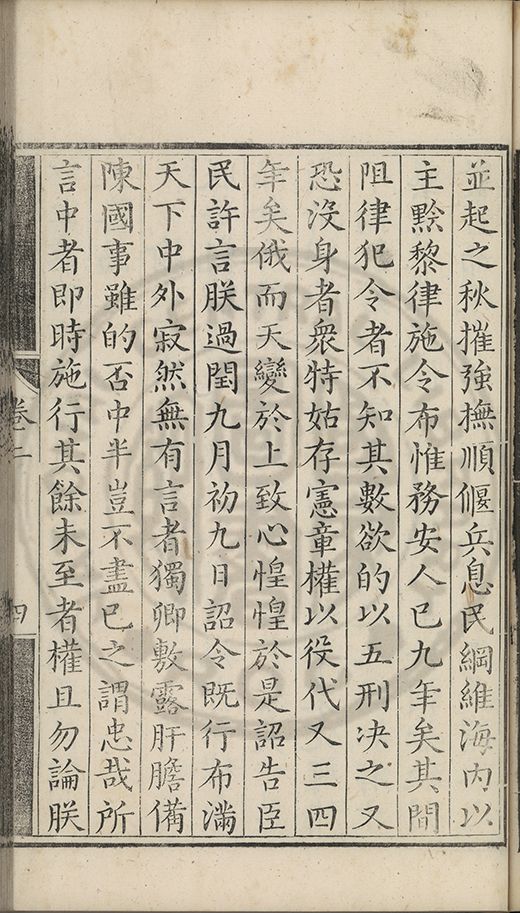 並起之秋摧強撫順偃兵息民綱維海內以
主黔黎律施令布惟務安人已九年矣其間
阻律犯令者不知其數欲的以五刑決之又
恐沒身者衆特姑存憲章權以役代又三四
年矣俄而天變於上致心惶惶於是詔告臣
民許言朕過閏九月初九日詔令既行布滿
天下中外寂然無有言者獨卿敷露肝膽備
陳國事雖的否中半豈不盡已之謂忠哉所
言中者即時施行其餘未至者權且勿論朕
卷二
四